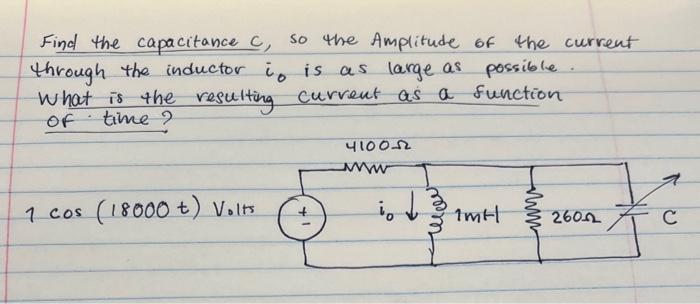 Find the capacitance C, so the Amplitude of the current
through the inductor io is as large as possible.
What is the resulting current as a function
of time?
4100Ω
1 cos (18000 t) Volts
+
-
io
1mH
260Ω
C